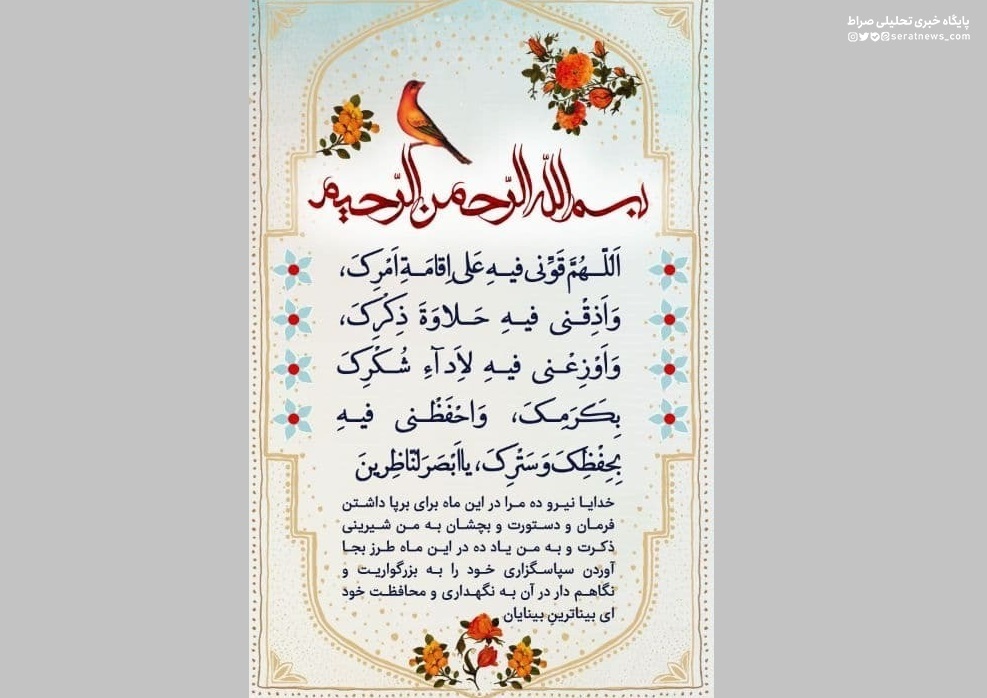 پایگاه خبری تحلیلی صراط
seratnews_com
بسم الله الرّحمن الرّحیم
اَللّهُمَّ قَوِّنی فیهِ عَلی اِقامَةِ اَمْرِکَ،
وَاَذِقْنی فیهِ حَلاوَةَ ذِکْرِکَ،
وَاَوْزِعْنی فیهِ لِاَدآءِ شُکْرِکَ
بِکَرَمِکَ، وَاحْفَظْنی فیهِ
بِحِفْظِکَ وَسَتْرِکَ، یا اَبْصَرَ النّاظِرینَ
خدایا نیرو ده مرا در این ماه برای برپا داشتن
فرمان و دستورت و بچشان به من شیرینی
ذکرت و به من یاد ده در این ماه طرز بجا
آوردن سپاسگزاری خود را به بزرگواریت و
نگاهم دار در آن به نگهداری و محافظت خود
ای بیناترین بینایان